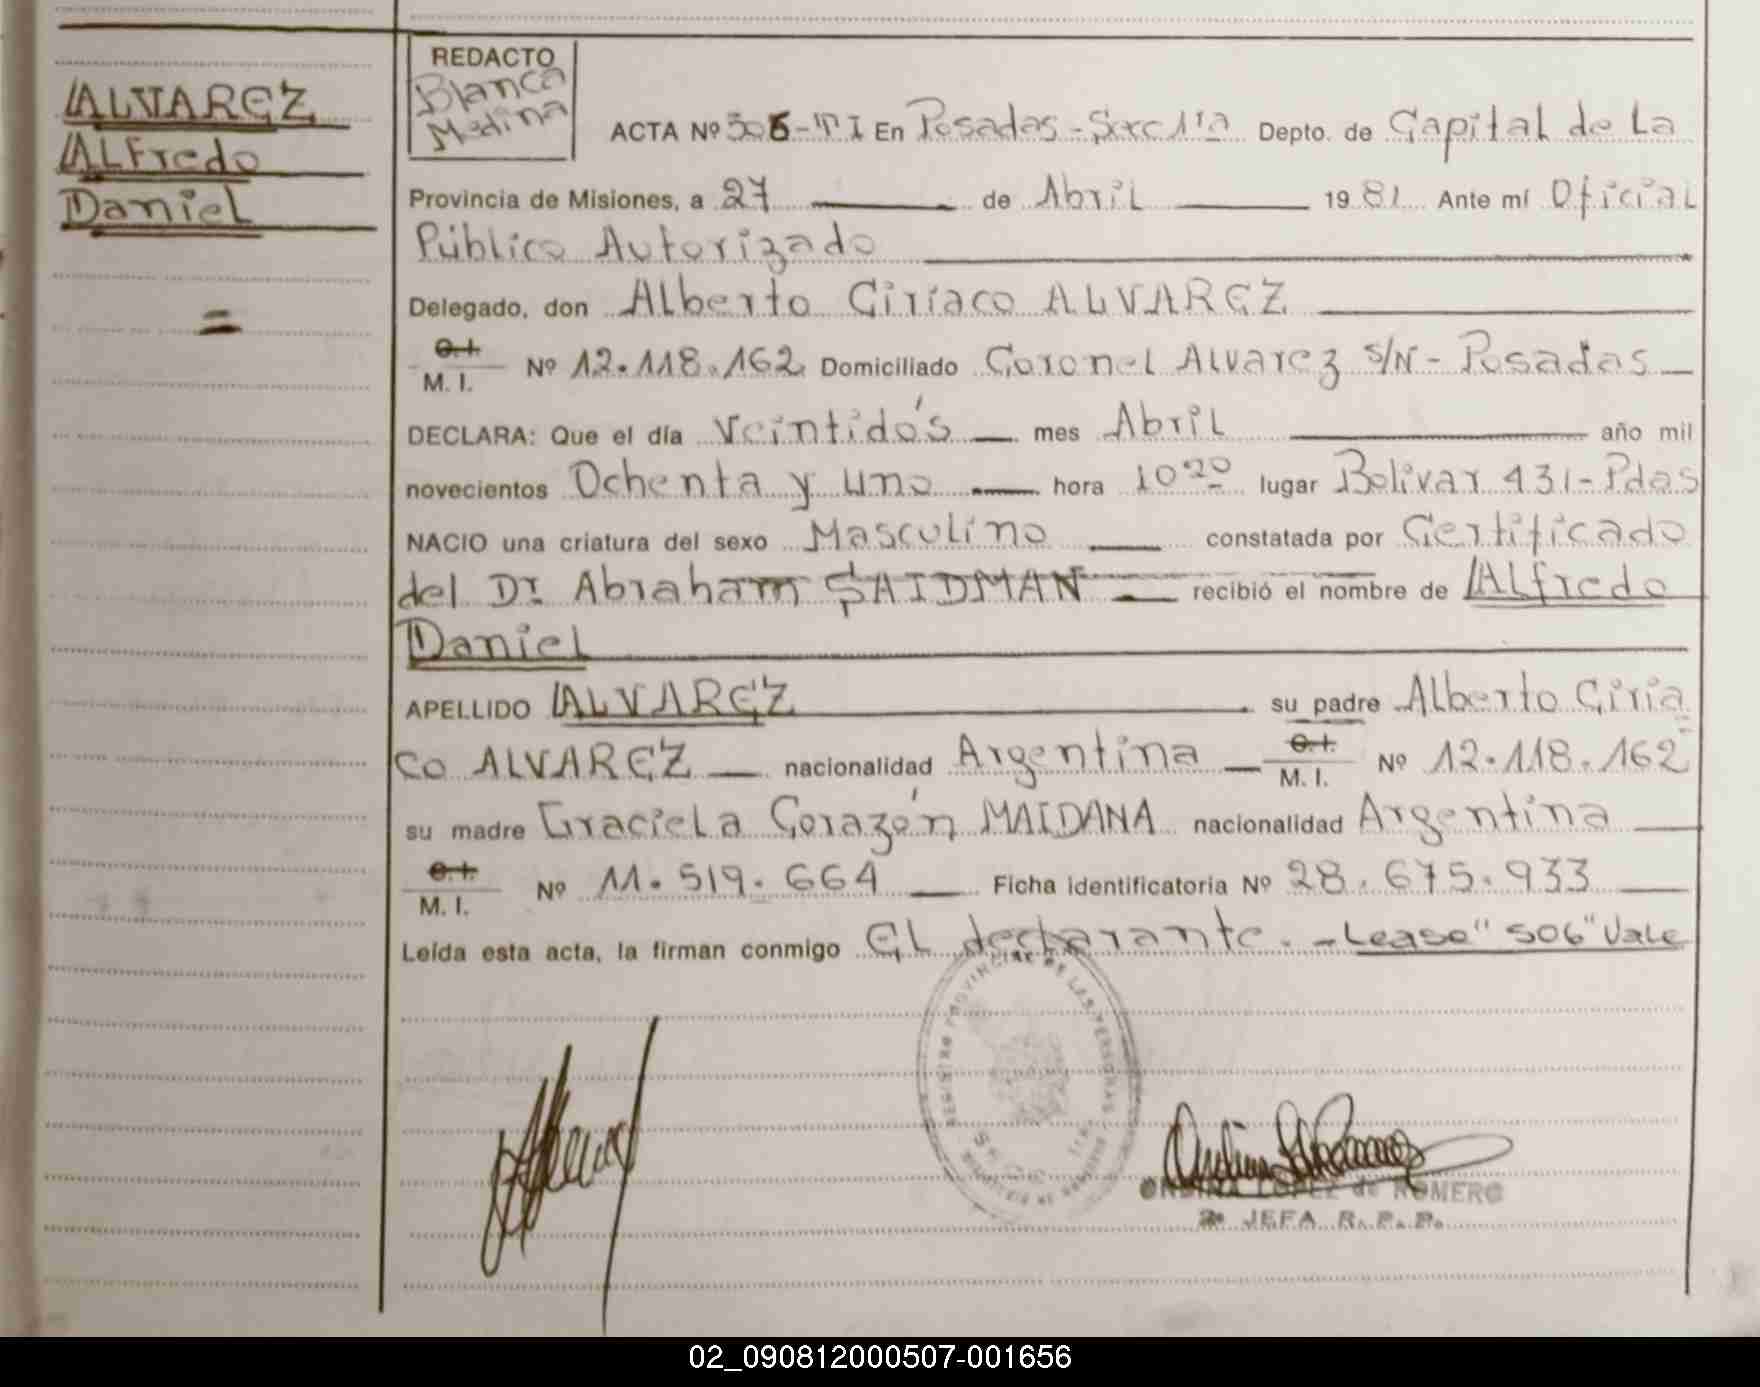 ALVAREZ
ALfredo
Daniel
=
REDACTO
Blanca
Medina
ACTA Nº 506-TI En Posadas-Secc 1ra Depto. de Capital de La
Provincia de Misiones, a 27 de Abril 1981 Ante mí Oficial
Público Autorizado
Delegado, don Alberto Ciriaco ALVAREZ
C.I.
M. I. Nº 12.118.162 Domiciliado Coronel Alvarez s/N - Posadas
DECLARA: Que el día Veintidós mes Abril año mil
novecientos Ochenta y uno hora 10 20 lugar Bolivar 431-Pdas
NACIO una criatura del sexo Masculino constatada por Certificado
del Dr Abraham SAIDMAN recibió el nombre de ALfredo
Daniel
APELLIDO ALVAREZ su padre Alberto Ciria
co ALVAREZ nacionalidad Argentina C.I.
M. I. Nº 12.118.162
su madre Graciela Corazón MAIDANA nacionalidad Argentina
C.I.
M. I. Nº 11.519.664 Ficha identificatoria Nº 28.675.933
Leída esta acta, la firman conmigo EL declarante.-Lease "506" Vale
REGISTRO PROVINCIAL DE LAS PERSONAS
ORDINA LOPEZ de ROMERO
2º JEFA R. P. P.
02_090812000507-001656